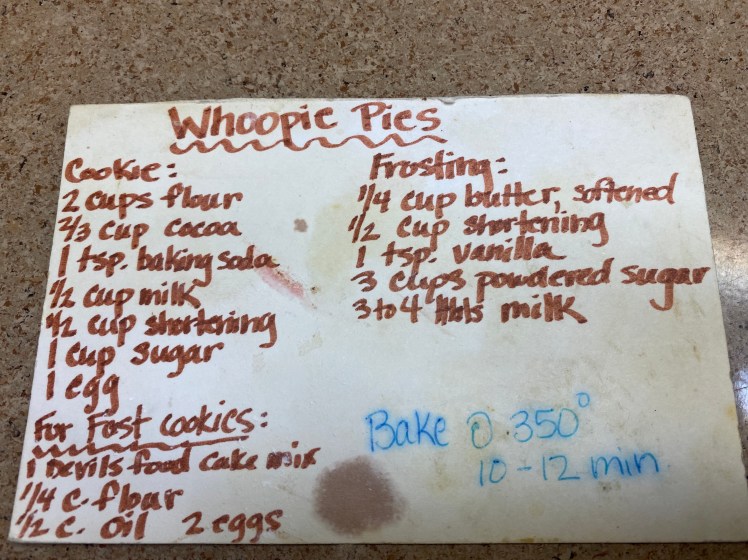 Whoopie Pies
Cookie:
2 cups flour
2/3 cup cocoa
1 tsp. baking soda
1/2 cup milk
1/2 cup shortening
1 cup sugar
1 egg
For Fast cookies:
1 Devils food cake mix
1/4 c. flour
1/2 c. oil 2 eggs
Frosting:
1/4 cup butter, softened
1/2 cup shortening
1 tsp. vanilla
3 cups powdered sugar
3 to 4 milk
Bake @ 350°
10-12 min